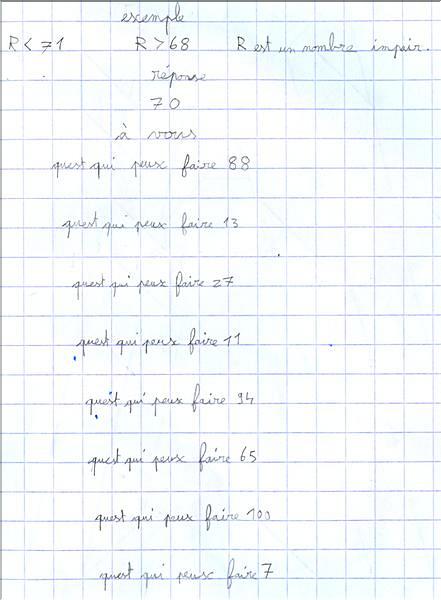 exemple
R < 71 R > 68 R est un nombre impair.
réponse
70
à vous
quest qui peux faire 88
quest qui peux faire 13
quest qui peux faire 27
quest qui peux faire 11
quest qui peux faire 94
quest qui peux faire 65
quest qui peux faire 100
quest qui peux faire 7